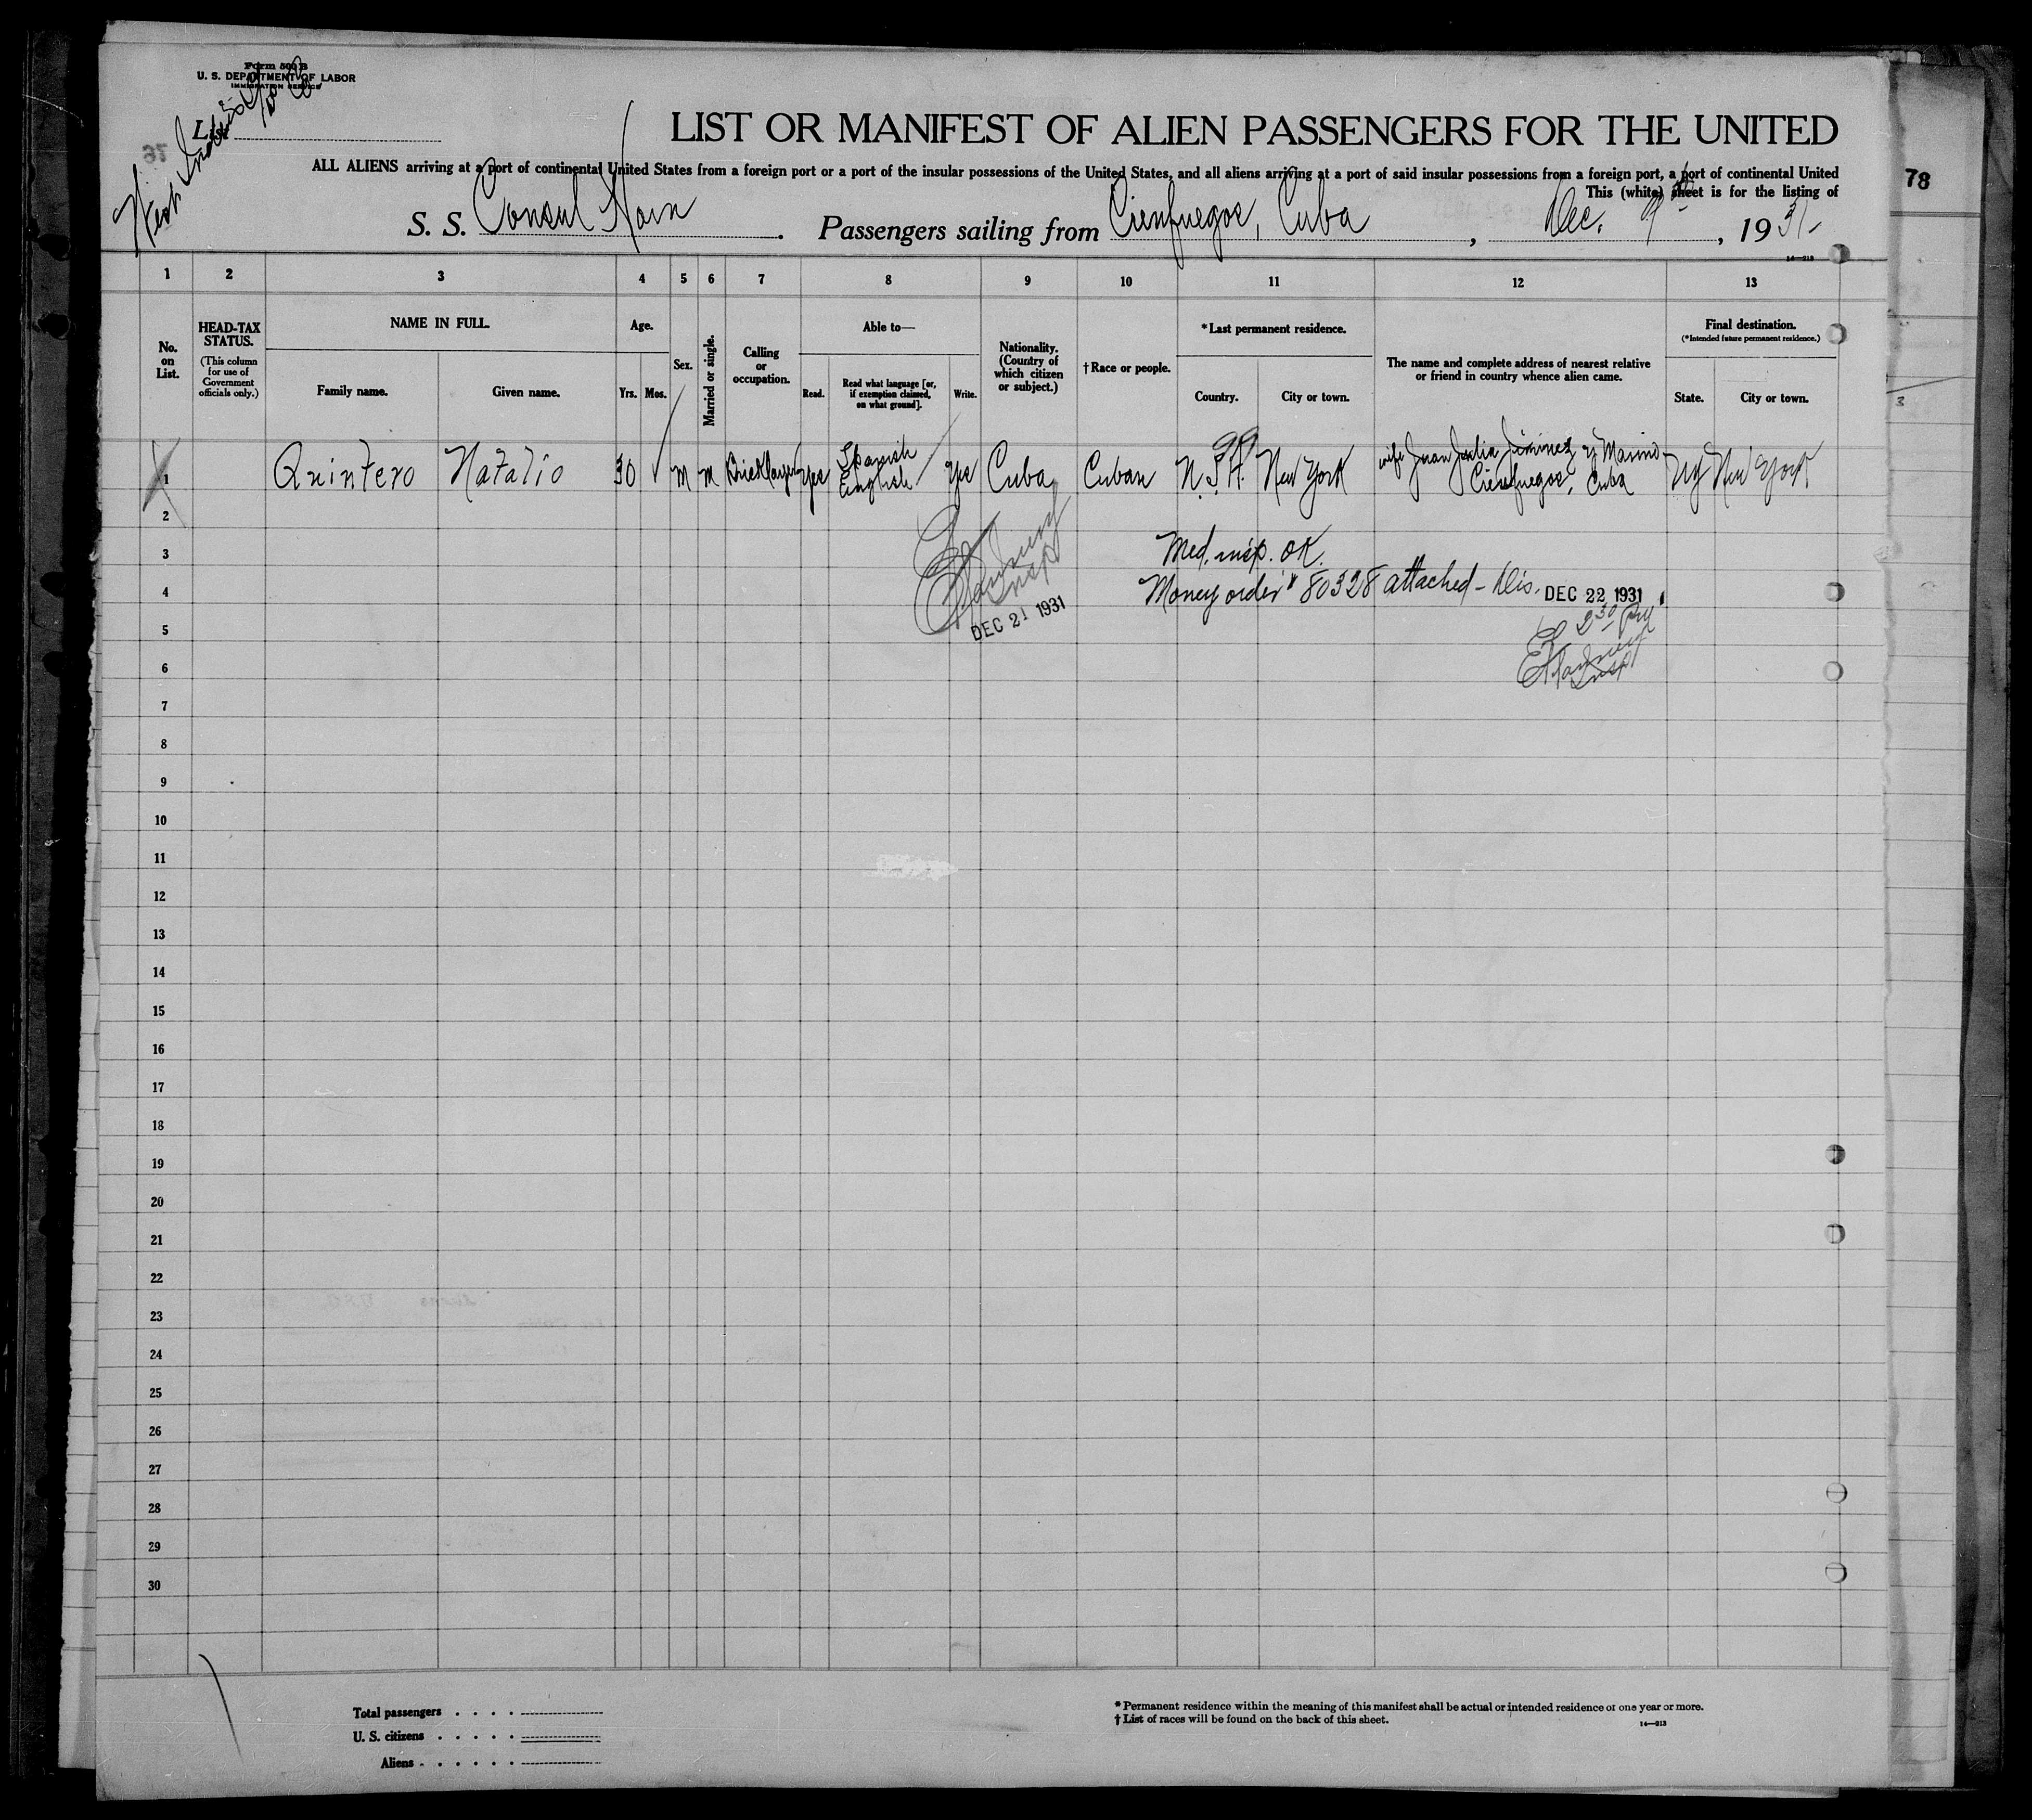 Form 500 B
U. S. DEPARTMENT OF LABOR
IMMIGRATION SERVICE
List
West Indies
LIST OR MANIFEST OF ALIEN PASSENGERS FOR THE UNITED
ALL ALIENS arriving at a port of continental United States from a foreign port or a port of the insular possessions of the United States, and all aliens arriving at a port of said insular possessions from a foreign port, a port of continental United
This (white) sheet is for the listing of
78
S. S. Consul Horn. Passengers sailing from Cienfuegos, Cuba, Dec. 9th, 1931-
14—213
1 2 3 4 5 6 7 8 9 10 11 12 13
No. on List.
HEAD-TAX STATUS.
(This column for use of Government officials only.)
NAME IN FULL.
Family name. Given name.
Age.
Yrs. Mos.
Sex.
Married or single.
Calling or occupation.
Able to—
Read. Read what language [or, if exemption claimed, on what ground]. Write.
Nationality. (Country of which citizen or subject.)
†Race or people.
*Last permanent residence.
Country. City or town.
The name and complete address of nearest relative or friend in country whence alien came.
Final destination.
(*Intended future permanent residence.)
State. City or town.
3
99
1 Quintero Natalio 30 M M Bricklayer Yes Spanish English Yes Cuba Cuban New York wife Juan Julia Jiminez y Marino Cienfuegos, Cuba NY New York
2
3 Med. insp. OK.
4 Money order # 80328 attached - Dis. DEC 22 1931
DEC 21 1931
2 30 PM
Insp
Insp
5
6
7
8
9
10
11
12
13
14
15
16
17
18
19
20
21
22
23
24
25
26
27
28
29
30
Total passengers
U. S. citizens
Aliens
* Permanent residence within the meaning of this manifest shall be actual or intended residence of one year or more.
† List of races will be found on the back of this sheet.
14—213